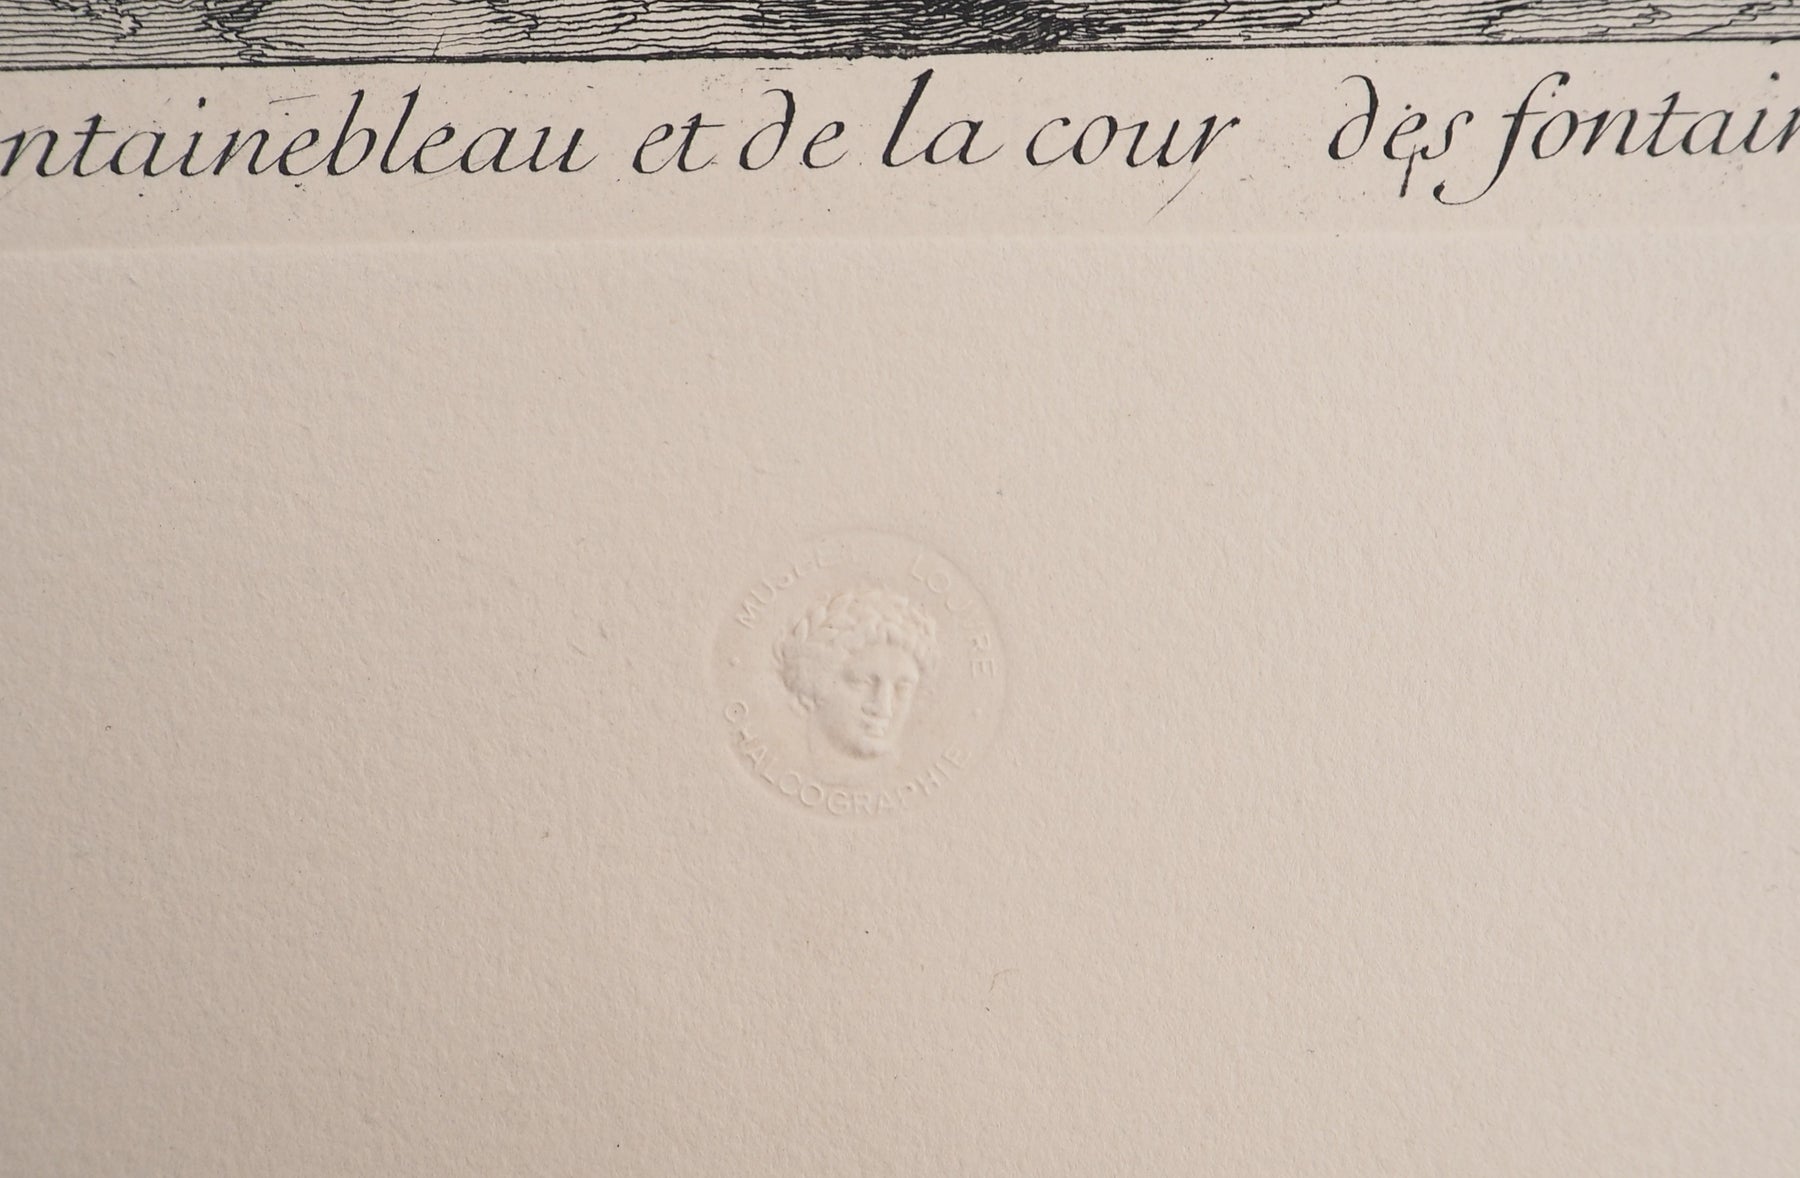 ntainebleau et de la cour des fontain
MUSÉE LOUVRE
CHALCOGRAPHIE